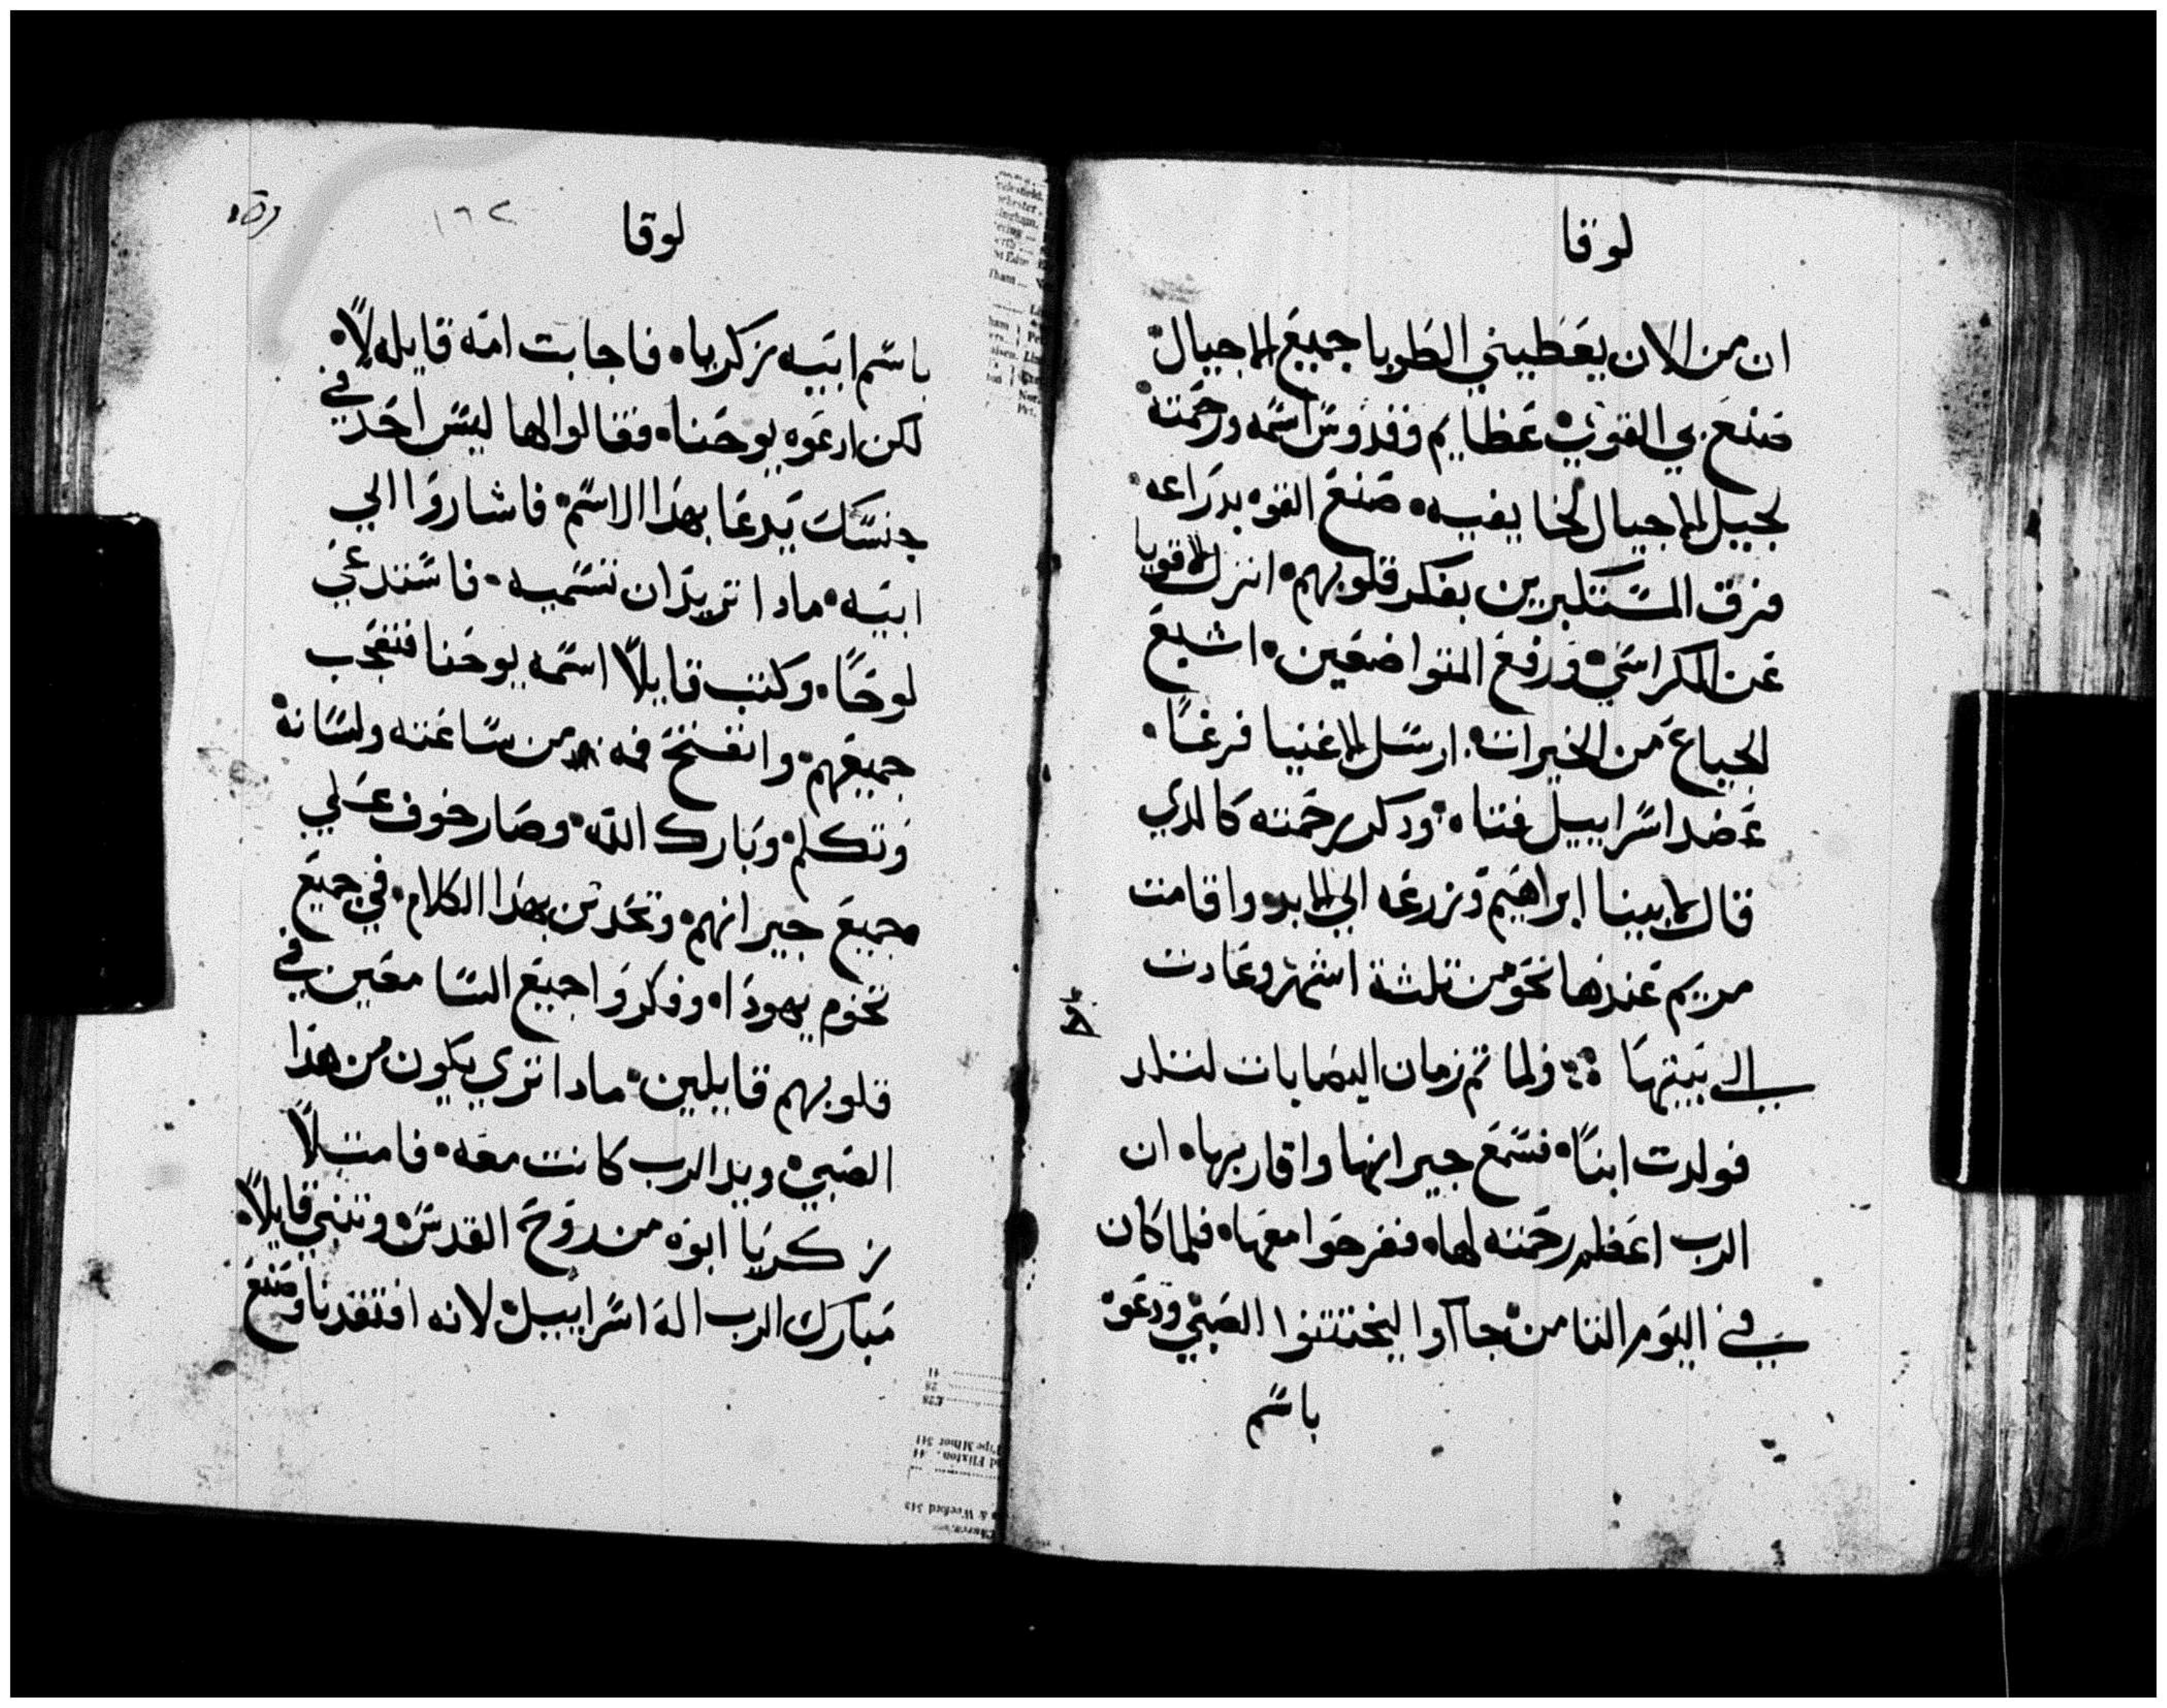 لوقا
ان من الان يعطيني الطوبا جميع الاجيال
صنع بي القوي عظايم وقدوس اسمه ورحمته
لجيل الاجيال لخايفيه صنع القوه بدراعه
فرق المستكبرين بفكر قلوبهم انزل الاقويا
عن الكراسي ورفع المتواضعين اشبع
الجياع من الخيرات ارسل الاغنيا فرغا
عضد اسراييل فتاه ودكر رحمته كالدي
قال لابينا ابراهيم وزرعه الي الابد واقامت
مريم عندها نحو من تلثة اشهر وعادت
الي بيتها ولما تم زمان اليصابات لتلد
فولدت ابنا فسمع جيرانها واقاربها ان
الرب اعظم رحمته لها ففرحوا معها فلما كان
في اليوم التامن جاآوا ليختتنوا الصبي ودعوه
باسم
لوقا
١٦٢
باسم ابيه زكريا فاجابت امه قايله لا
لكن ادعوه يوحنا فقالوا لها ليس احد في
جنسك يدعا بهدا الاسم فاشاروا الي
ابيه مادا تريد ان نسميه فاستدعي
لوحا وكتب قايلا اسمه يوحنا فتعجب
جميعهم وانفتح فمه من ساعته ولسانه
وتكلم وبارك الله وصار خوف علي
جميع جيرانهم وتحدتن بهدا الكلام في جميع
تخوم يهودا وفكروا جميع السامعين في
قلوبهم قايلين مادا تري يكون من هدا
الصبي ويد الرب كانت معه فامتلا
زكريا ابوه من روح القدس وتنبي قايلا
مبارك الرب اله اسراييل لانه افتقدنا وصنع